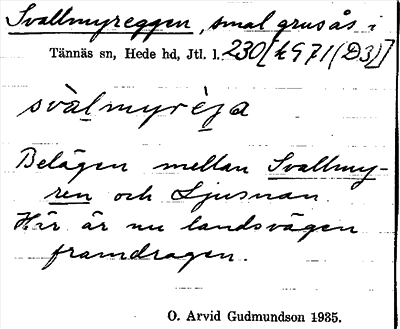 Svallmyreggen, smal grusås i
Tännäs sn, Hede hd, Jtl. l. 230[kG71(D3)]
svàl̲myrèg̲a
Belägen mellan Svallmy-
ren och Ljusnan.
Här är nu landsvägen
framdragen.
O. Arvid Gudmundson 1935.